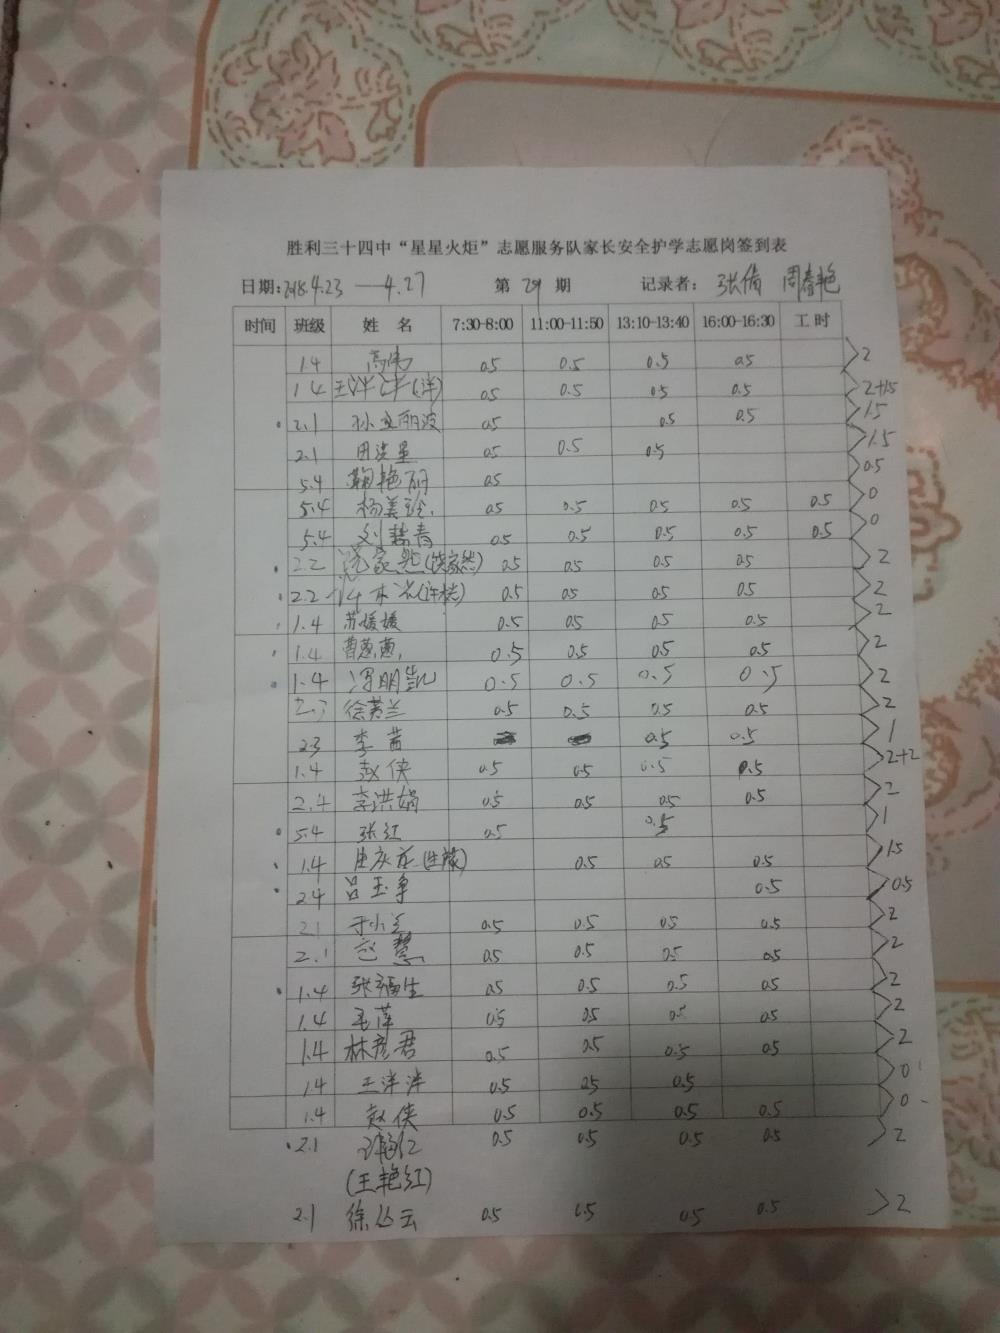 胜利三十四中“星星火炬”志愿服务队家长安全护学志愿岗签到表
日期:2018.4.23——4.27 第 29 期 记录者: 张倩 周春艳
时间 班级 姓 名 7:30-8:00 11:00-11:50 13:10-13:40 16:00-16:30 工 时
1.4 高伟 0.5 0.5 0.5 0.5 2
1.4 王洋洋(洋) 0.5 0.5 0.5 0.5 2+1.5
2.1 孙丽波 0.5 0.5 0.5 1.5
2.1 田洪星 0.5 0.5 0.5 1.5
5.4 鞠艳丽 0.5 0.5
5.4 杨美玲. 0.5 0.5 0.5 0.5 0.5 0
5.4 刘 青 0.5 0.5 0.5 0.5 0.5 0
2.2 0.5 0.5 0.5 0.5 2
2.2 0.5 0.5 0.5 0.5 2
1.4 苏媛媛 0.5 0.5 0.5 0.5 2
1.4 曹蕙蕙. 0.5 0.5 0.5 0.5 2
1.4 冯明凯 0.5 0.5 0.5 0.5 2
2.3 徐英兰 0.5 0.5 0.5 0.5 2
2.3 李茜 0.5 0.5 1
1.4 赵侠 0.5 0.5 0.5 0.5 2+2
2.4 李洪娟 0.5 0.5 0.5 0.5 2
5.4 张红 0.5 0.5 1
1.4 0.5 0.5 0.5 1.5
2.4 吕玉争 0.5 0.5
2.1 于小兰 0.5 0.5 0.5 0.5 2
2.1 赵慧 0.5 0.5 0.5 0.5 2
1.4 张福生 0.5 0.5 0.5 0.5 2
1.4 毛萍 0.5 0.5 0.5 0.5 2
1.4 林彦君 0.5 0.5 0.5 0.5 2
1.4 王洋洋 0.5 0.5 0.5 0
1.4 赵侠 0.5 0.5 0.5 0.5 0
2.1 0.5 0.5 0.5 0.5 2
(王艳红)
2.1 徐丛云 0.5 0.5 0.5 0.5 2